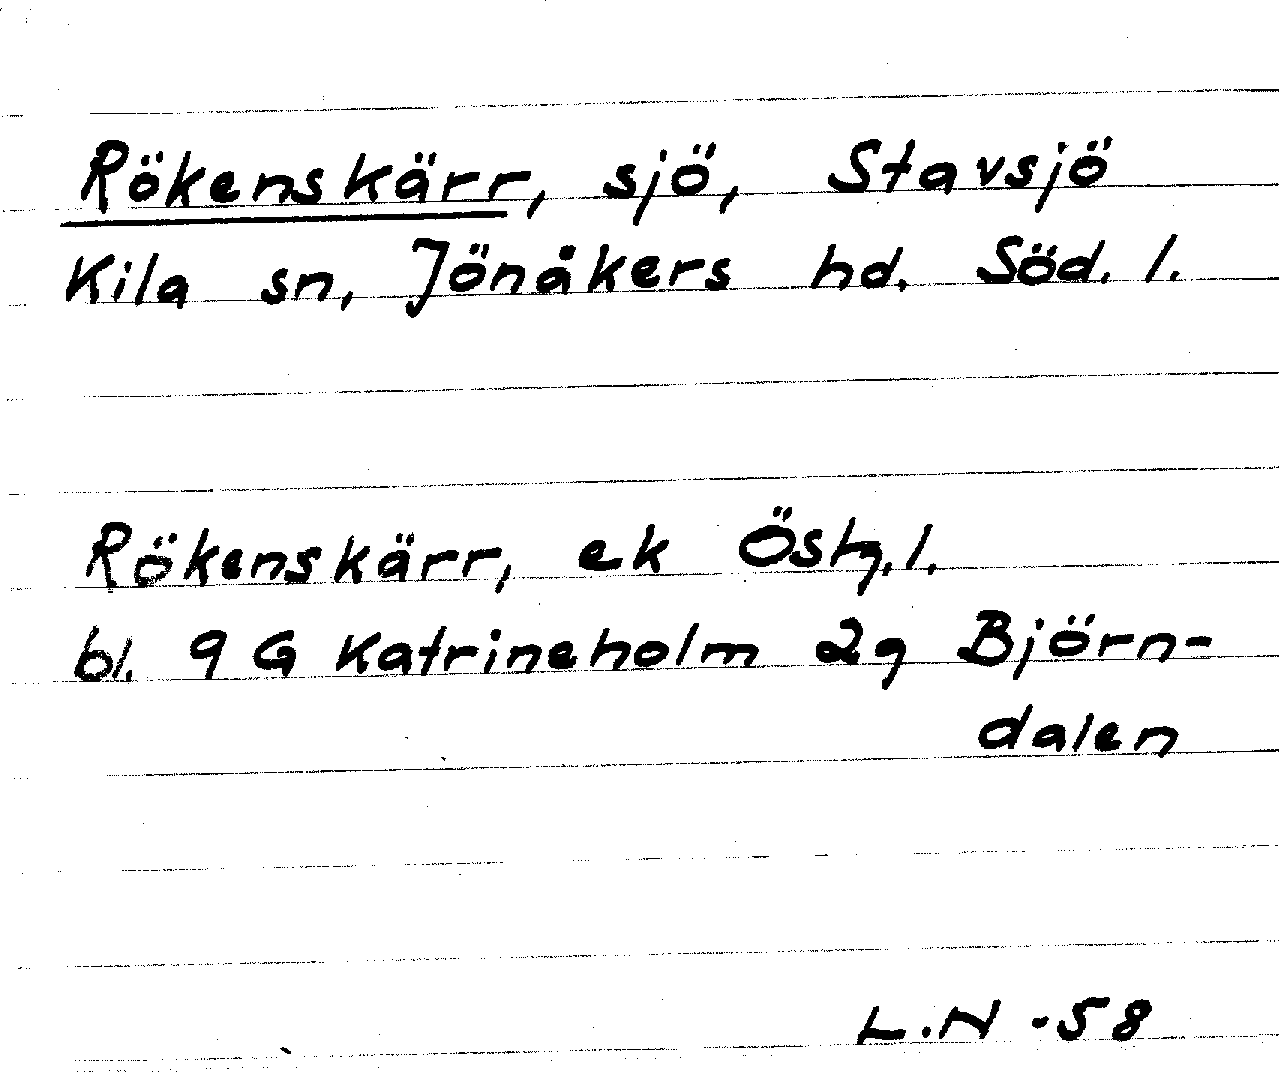 Rökenskärr, sjö, Stavsjö
Kila sn, Jönåkers hd. Söd. l.
Rökenskärr, ek Östg. l.
bl. 9 G Katrineholm 2g Björn-
dalen
L.N -58